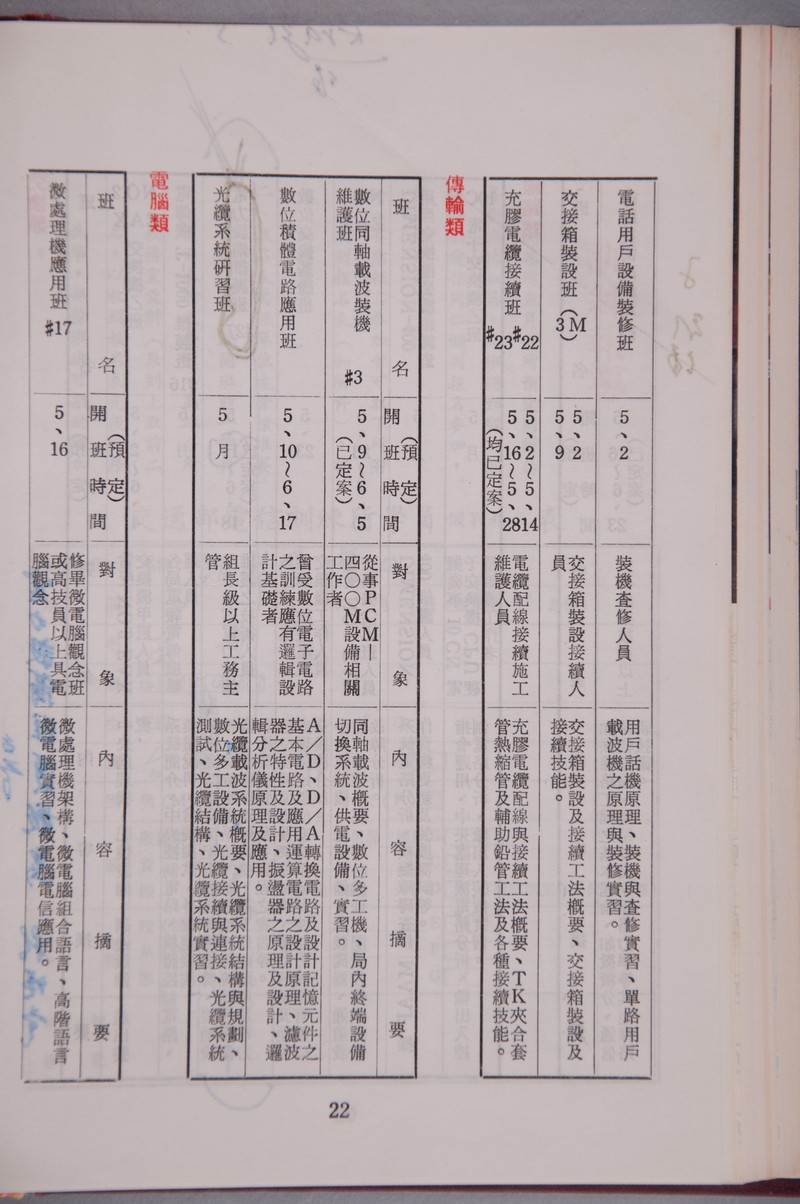 電話用戶設備裝修班
5、2
裝機查修人員
用戶話機原理、裝機與查修實習、單路用戶
載波機之原理與裝修實習。
交接箱裝設班（3M）
5、2
5、9
交接箱裝設接續人
員
交接箱裝設及接續工法概要、交接箱裝設及
接續技能。
充膠電纜接續班
#22
#23
5、2～5、14
5、16～5、28
（均已定案）
電纜配線接續施工
維護人員
充膠電纜配線與接續工法概要、TK夾合套
管熱縮管及輔助鉛管工法及各種接續技能。
傳輸類
班名
開班時間
（預定）
對象
內容摘要
數位同軸載波裝機
維護班
#3
5、9～6、5
（已定案）
從事PCM—
四○○M設備相關
工作者
同軸載波概要、數位多工機、局內終端設備
切換系統、供電設備、實習。
數位積體電路應用班
5、10～6、17
曾受數位電子電路
之訓練應有邏輯設
計基礎者
A／D、D／A轉換電路及設計記憶元件之
基本電路及應用運算電路之設計原理、濾波
器之特性及設計、振盪器之原理及設計、邏
輯分析儀原理及應用。
光纜系統研習班
5月
組長級以上工務主
管
光纜載波系統概要、光纜系統結構與規劃、
數位多工設備、光纜接續與連接、光纜系統
測試、光纜結構、光纜系統實習。
電腦類
班名
開班時間
（預定）
對象
內容摘要
微處理機應用班
#17
5、16
修畢微電腦觀念班
或高技員以上具電
腦觀念
微處理機架構、微電腦組合語言、高階語言
微電腦實習、微電腦電信應用。
22